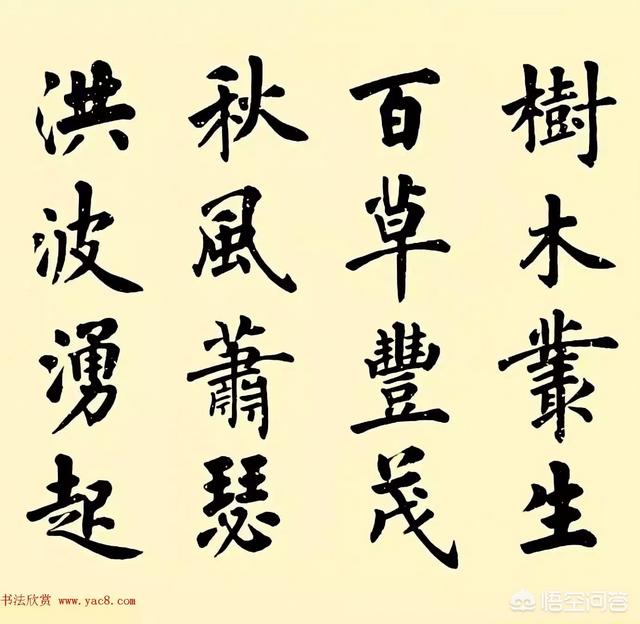 樹木叢生
百草豐茂
秋風蕭瑟
洪波湧起
书法欣赏 www.yac8.com
悟空问答